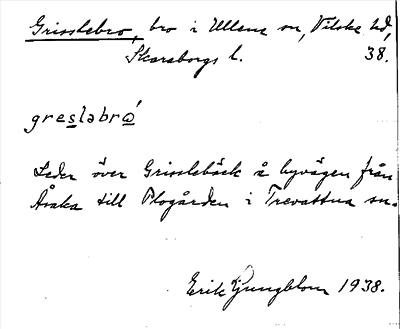 Grisslebro, bro i Ullene sn, Vilske hd,
Skaraborgs l. 38.
greslabro´
Leder över Grisslebäck å byvägen från
Åsaka till Plogården i Trevattna sn.
Erik Ljungblom 1938.